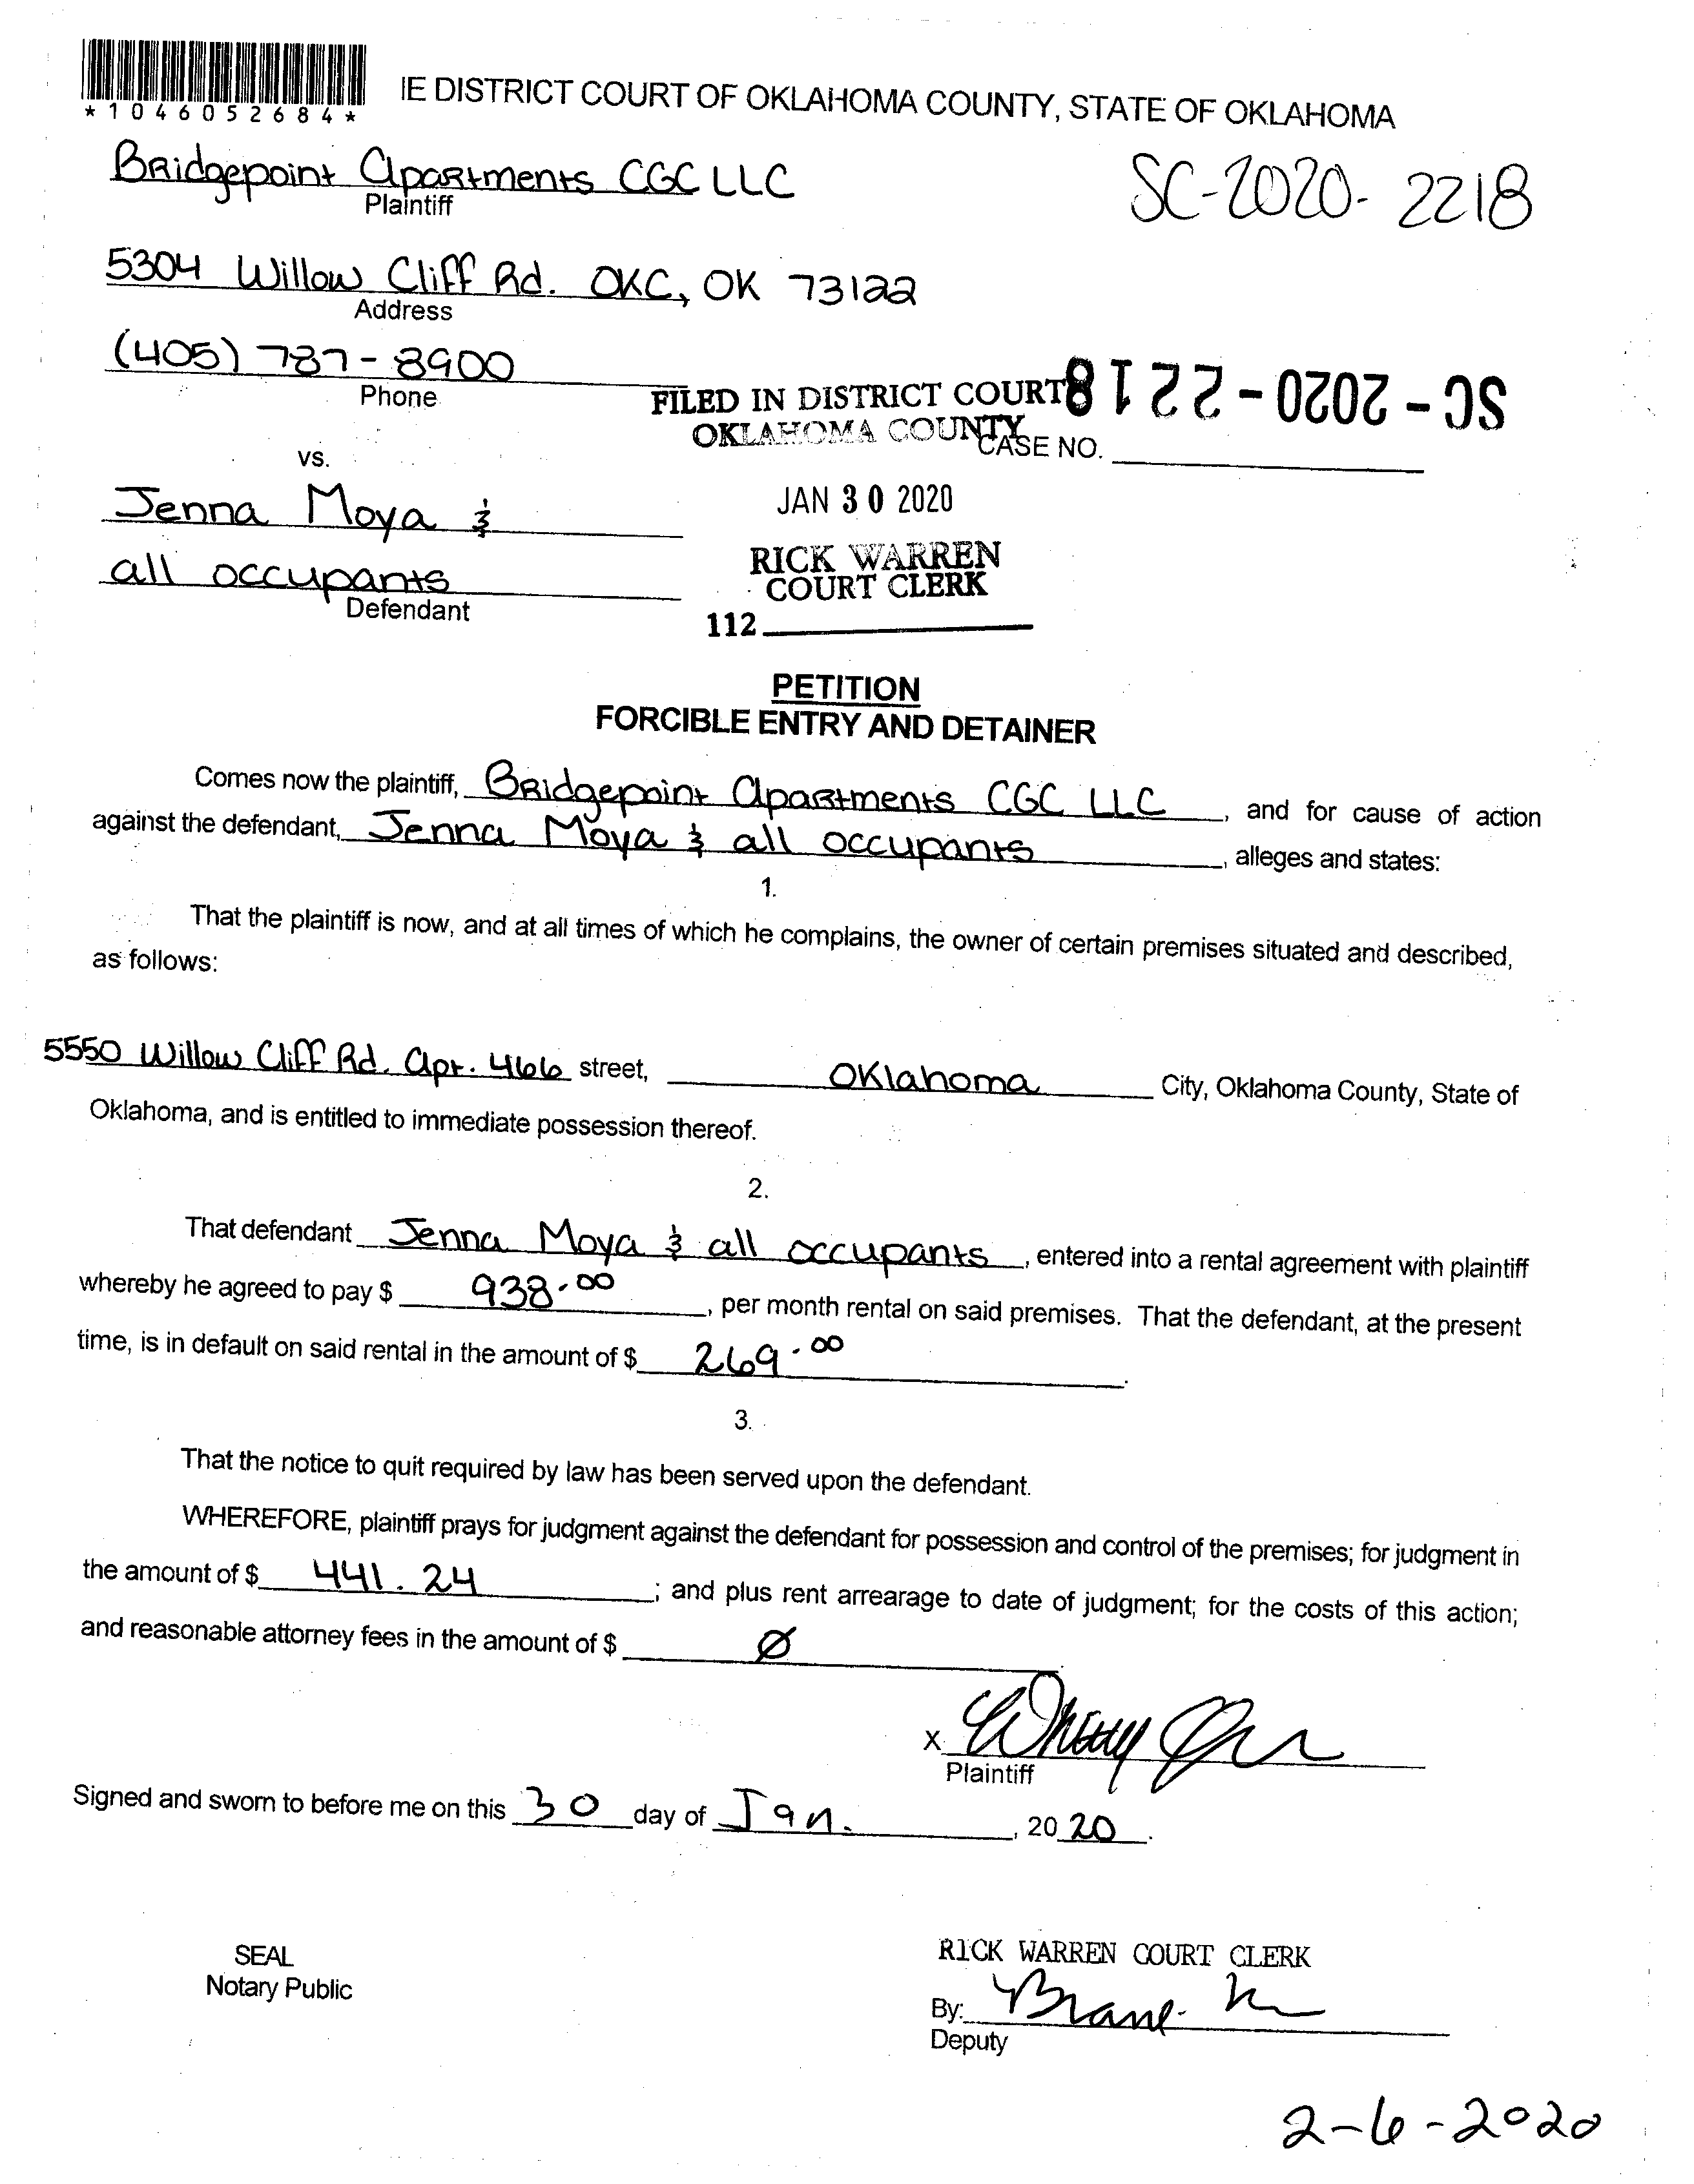 *1046052684*
IE DISTRICT COURT OF OKLAHOMA COUNTY, STATE OF OKLAHOMA
Bridgepoint Apartments CGC LLC
Plaintiff
SC-2020-2218
5304 Willow Cliff Rd. OKC, OK 73122
Address
(405) 787-8900
Phone
FILED IN DISTRICT COURT
OKLAHOMA COUNTY
SC-2020-2218
CASE NO.
vs.
JAN 30 2020
Jenna Moya &
all occupants
Defendant
RICK WARREN
COURT CLERK
112
PETITION
FORCIBLE ENTRY AND DETAINER
Comes now the plaintiff, Bridgepoint Apartments CGC LLC, and for cause of action
against the defendant, Jenna Moya & all occupants, alleges and states:
1.
That the plaintiff is now, and at all times of which he complains, the owner of certain premises situated and described,
as follows:
5550 Willow Cliff Rd. Apt. 466 street, Oklahoma City, Oklahoma County, State of
Oklahoma, and is entitled to immediate possession thereof.
2.
That defendant Jenna Moya & all occupants, entered into a rental agreement with plaintiff
whereby he agreed to pay $ 938.00, per month rental on said premises. That the defendant, at the present
time, is in default on said rental in the amount of $ 269.00.
3.
That the notice to quit required by law has been served upon the defendant.
WHEREFORE, plaintiff prays for judgment against the defendant for possession and control of the premises; for judgment in
the amount of $ 441.24; and plus rent arrearage to date of judgment; for the costs of this action;
and reasonable attorney fees in the amount of $ Ø
X
Plaintiff
Signed and sworn to before me on this 30 day of Jan., 2020.
SEAL
Notary Public
RICK WARREN COURT CLERK
By:
Deputy
2-6-2020